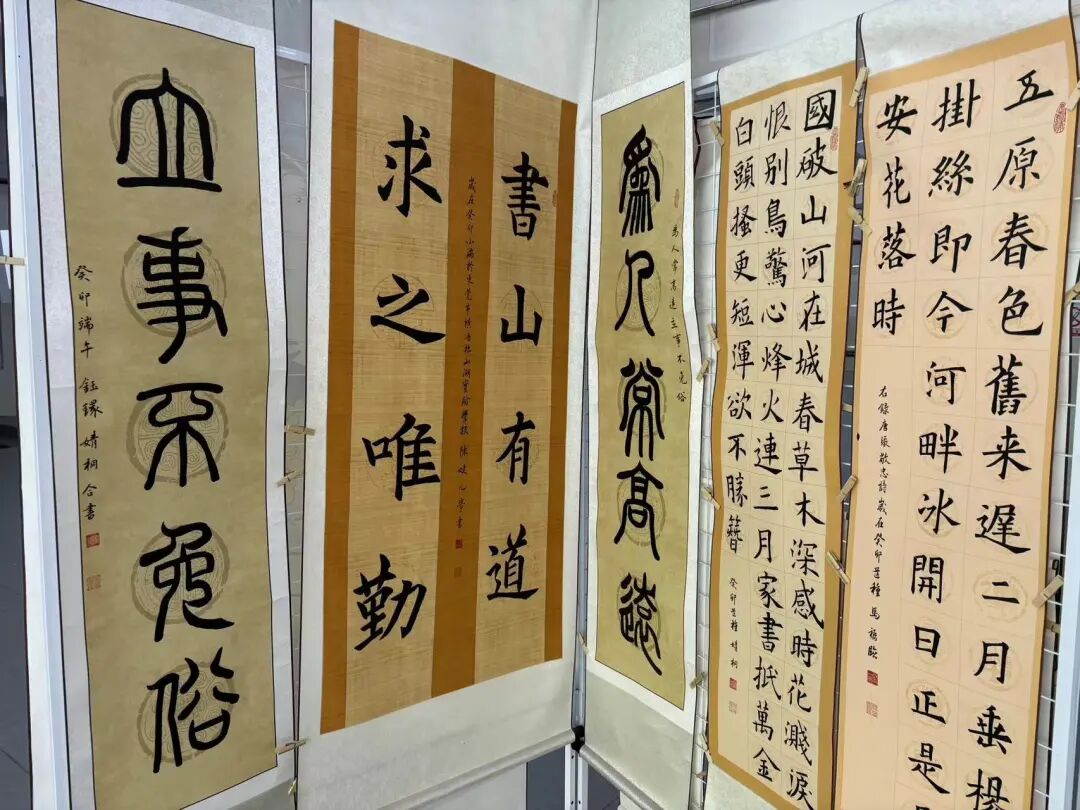 五原春色舊来遲二月垂楊
掛絲即今河畔冰開日正是
安花落時
右錄唐張敬忠詩歲在癸卯芒種
國破山河在城春草木深感時花濺淚
恨別鳥驚心烽火連三月家書抵萬金
白頭搔更短渾欲不勝簪
癸卯芒種 婧桐
為人常高遠立事不免俗
爲人常高遠
書山有道
歲在癸卯小滿於東莞市松山湖實驗學校
求之唯勤
立事不免俗
癸卯端午 鈺鎵 婧桐 合書